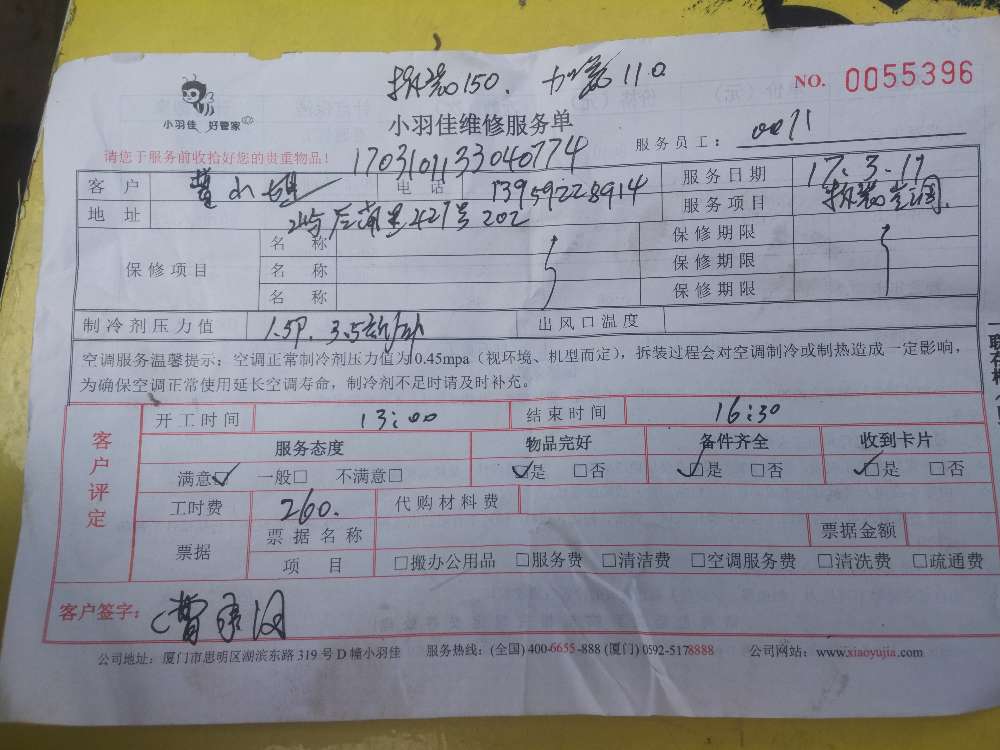 拆装150. 加氨110
NO. 0055396
小羽佳 好管家
小羽佳维修服务单
服务员工： 0071
请您于服务前收拾好您的贵重物品！
1703101133040774
客 户 曹小姐 电 话 13959228914 服务日期 17.3.17
地 址 后 里427号202 服务项目 拆装空调
保修项目 名 称 保修期限
名 称 保修期限
名 称 保修期限
制冷剂压力值 1.5P. 3.5 出风口温度
空调服务温馨提示：空调正常制冷剂压力值为0.45mpa（视环境、机型而定），拆装过程会对空调制冷或制热造成一定影响，
为确保空调正常使用延长空调寿命，制冷剂不足时请及时补充。
客户评定
开工时间 13:00 结束时间 16:30
服务态度 物品完好 备件齐全 收到卡片
满意☑ 一般□ 不满意□ ☑是 □否 ☑是 □否 ☑是 □否
工时费 260. 代购材料费
票据 票据名称 票据金额
项 目 □搬办公用品 □服务费 □清洁费 □空调服务费 □清洗费 □疏通费
客户签字：曹
公司地址：厦门市思明区湖滨东路319号D幢小羽佳 服务热线：(全国) 400-6655-888 (厦门) 0592-5178888 公司网站：www.xiaoyujia.com